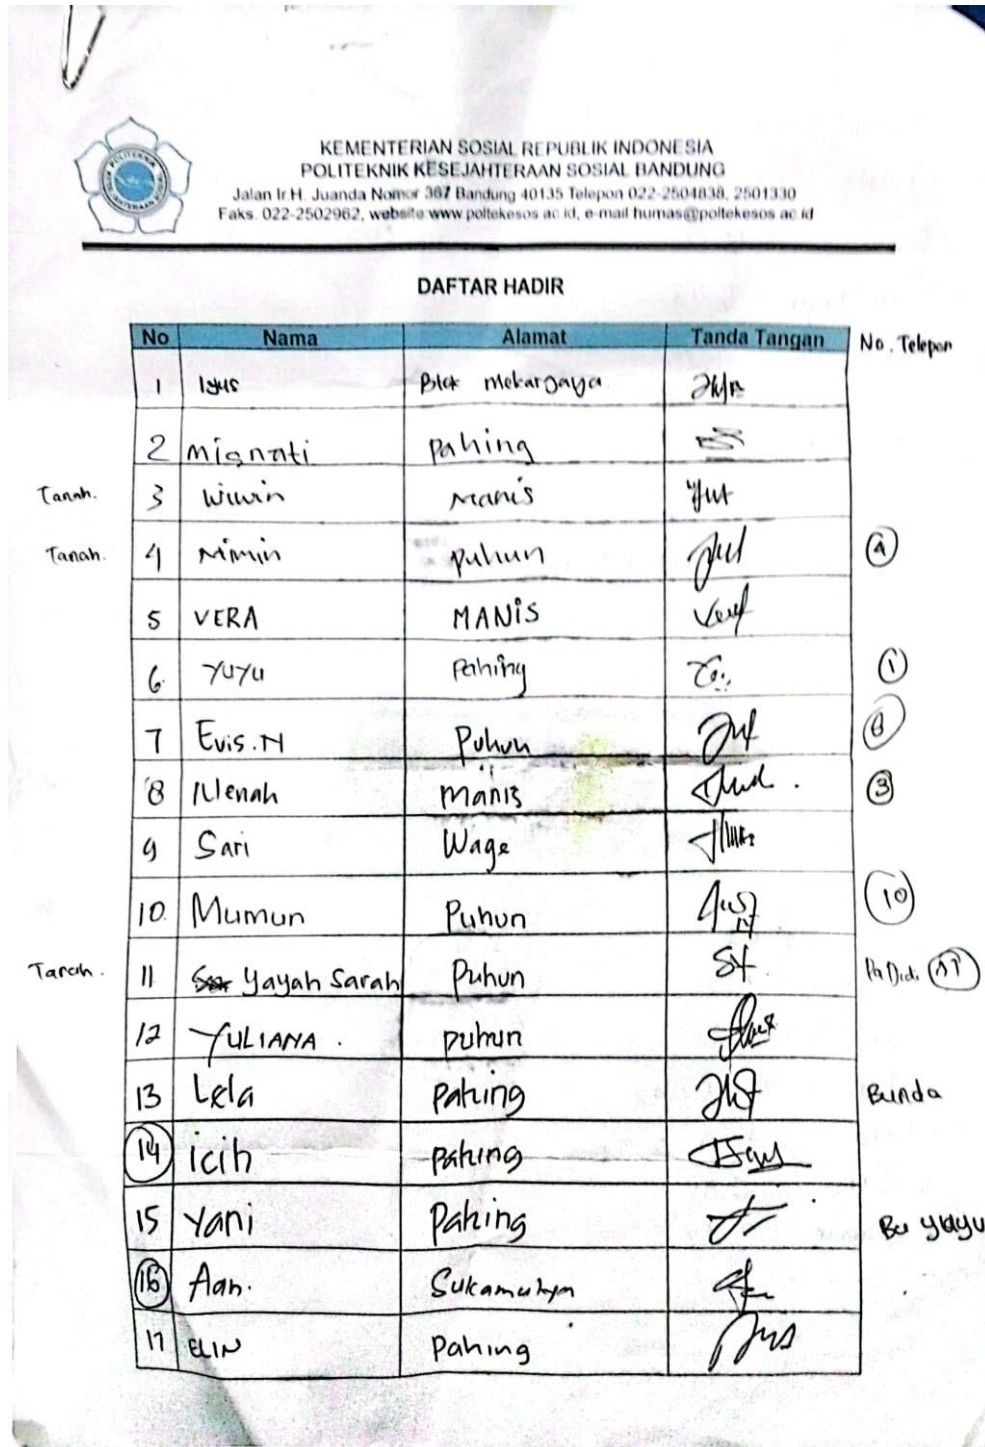 KEMENTERIAN SOSIAL REPUBLIK INDONESIA
POLITEKNIK KESEJAHTERAAN SOSIAL BANDUNG
Jalan Ir.H. Juanda Nomor 367 Bandung 40135 Telepon 022-2504838, 2501330
Faks. 022-2502962, website www.poltekesos.ac.id, e-mail humas@poltekesos.ac.id
DAFTAR HADIR
No Nama Alamat Tanda Tangan No. Telepon
1 Iyus Blok Mekarjaya
2 Mignati Pahing
Tanah. 3 Wiwin Manis
Tanah. 4 Mimin Puhun 4
5 VERA MANIS
6. YUYU Pahing 1
7 Evis.N Puhun
8 Nenah Manis 3
9 Sari Wage
10. Mumun Puhun 10
11 Yayah Sarah Puhun Pa Didi 11
12 YULIANA. puhun
13 Lela pahing Bunda
14 icih pahing
15 Yani Pahing Bu yuyu
16 Aan. Sukamulya
17 ELIN Pahing